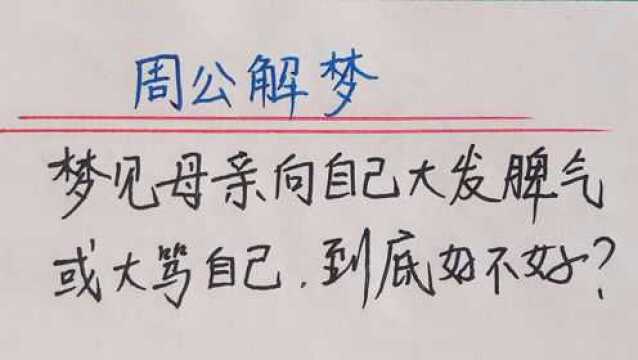 周公解梦
梦见母亲向自己大发脾气
或大骂自己.到底好不好?